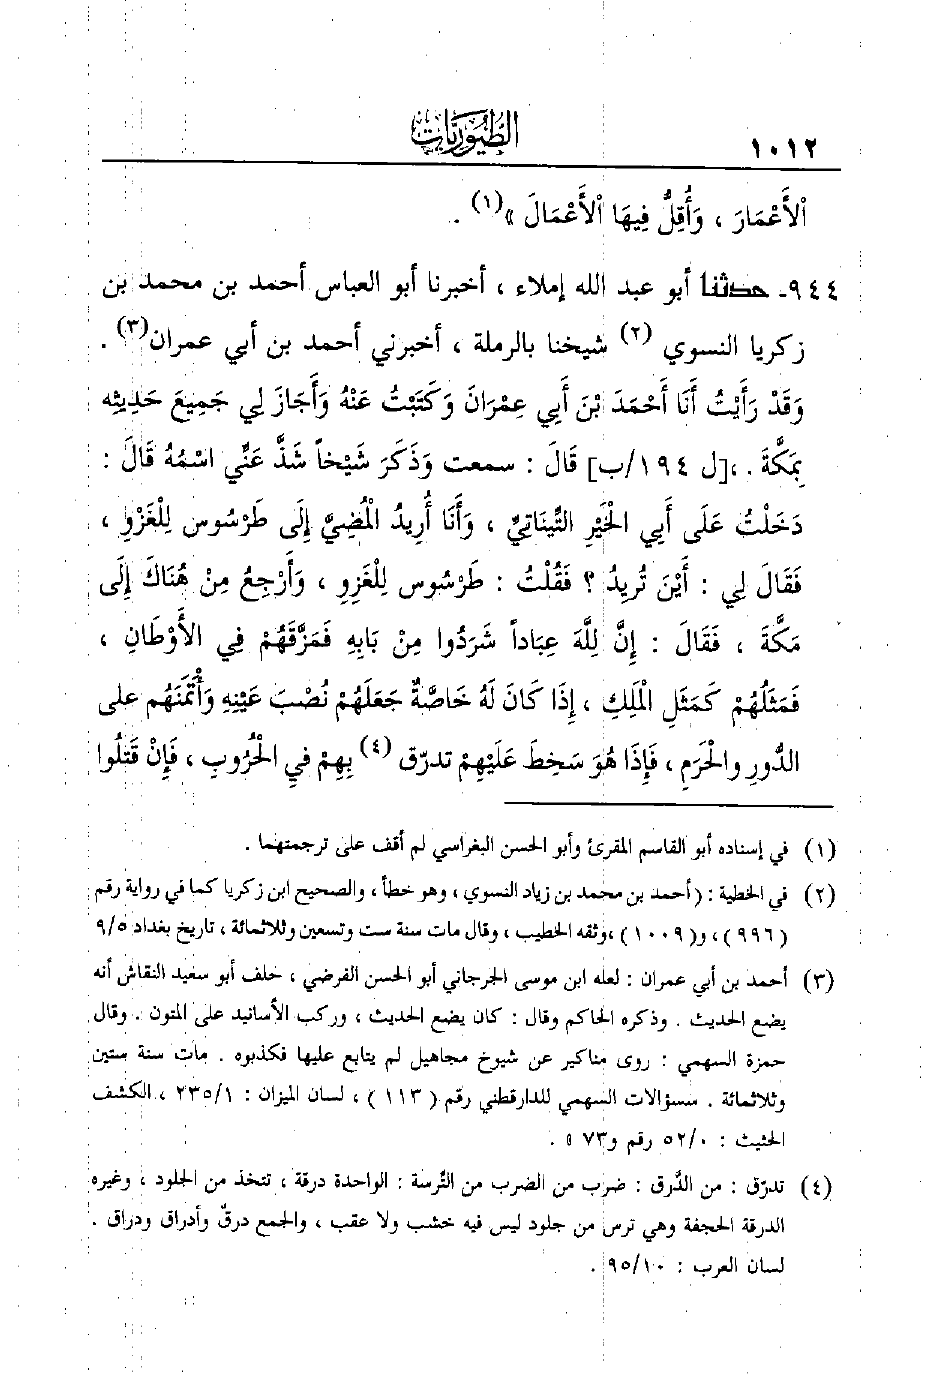 ١٠١٢
الطيوريات
الأَعْمَارَ ، وَأُقِلُّ فِيهَا الأَعْمَالَ »(١) .
٩٤٤ـ حدثنا أبو عبد الله إملاء ، أخبرنا أبو العباس أحمد بن محمد بن
زكريا النسوي (٢) شيخنا بالرملة ، أخبرني أحمد بن أبي عمران(٣) .
وَقَدْ رَأَيْتُ أَنَا أَحْمَدَ بْنَ أَبِي عِمْرَانَ وَكَتَبْتُ عَنْهُ وَأَجَازَ لِي جَمِيعَ حَدِيثِه
بِمَكَّةَ . ،[ل ١٩٤/ب] قَالَ : سمعت وَذَكَرَ شَيْخاً شَذَّ عَنِّي اسْمُهُ قَالَ :
دَخَلْتُ عَلَى أَبِي الْخَيْرِ التِّينَاتِيِّ ، وَأَنَا أُرِيدُ الْمُضِيَّ إِلَى طَرْسُوس لِلْغَزْوِ ،
فَقَالَ لِي : أَيْنَ تُرِيدُ ؟ فَقُلْتُ : طَرْسُوس لِلْغَزِو ، وَأَرْجِعُ مِنْ هُنَاكَ إِلَى
مَكَّةَ ، فَقَالَ : إِنَّ لِلَّهَ عِبَاداً شَرَدُوا مِنْ بَابِهِ فَمَزَّقَهُمْ فِي الأَوْطَانِ ،
فَمَثَلُهُمْ كَمَثَلِ الْمَلِكِ ، إِذَا كَانَ لَهُ خَاصَّةٌ جَعَلَهُمْ نُصْبَ عَيْنِهِ وَأْتَمَنَهُم على
الدُّورِ والْحَرَمِ ، فَإِذَا هُوَ سَخِطَ عَلَيْهِمْ تدرّق (٤) بِهِمْ فِي الْحُرُوبِ ، فَإِنْ قَتَلُوا
(١) في إسناده أبو القاسم المقرئ وأبو الحسن البغراسي لم أقف على ترجمتهما .
(٢) في الخطية : (أحمد بن محمد بن زياد النسوي ، وهو خطأ ، والصحيح ابن زكريا كما في رواية رقم
(٩٩٦)، و(١٠٠٩)،وثقه الخطيب ، وقال مات سنة ست وتسعين وثلاثمائة ، تاريخ بغداد ٩/٥
(٣) أحمد بن أبي عمران : لعله ابن موسى الجرجاني أبو الحسن الفرضي ، خلف أبو سعيد النقاش أنه
يضع الحديث . وذكره الحاكم وقال : كان يضع الحديث ، وركب الأسانيد على المتون . وقال
حمزة السهمي : روى مناكير عن شيوخ مجاهيل لم يتابع عليها فكذبوه . مات سنة ستين
وثلاثمائة . سسؤالات السهمي للدارقطني رقم (١١٣) ، لسان الميزان : ٢٣٥/١ ، الكشف
الحثيث : ٥٢/٠ رقم و٧٣ » .
(٤) تدرّق : من الدَّرق : ضرب من الضرب من التُرسة : الواحدة درقة ، تتخذ من الجلود ، وغيره
الدرقة الحجفة وهي ترس من جلود ليس فيه خشب ولا عقب ، والجمع درقٌ وأدراق ودراق .
لسان العرب : ٩٥/١٠ .